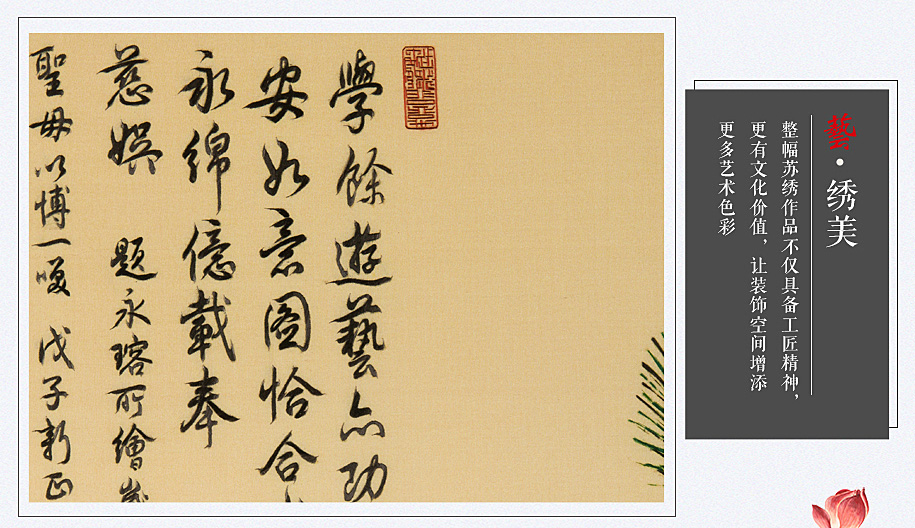 學餘遊藝亦功
安如意圖恰合
永綿億載奉
慈娛 題永瑢所繪
聖母以博一 戊子新正
藝·绣美
整幅苏绣作品不仅具备工匠精神，
更有文化价值，让装饰空间增添
更多艺术色彩